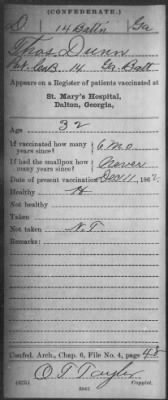 (CONFEDERATE.)
D 14 Batt'n Ga
Thos. Dunn
Pvt. Co. B. 14 Ga. Batt
Appears on a Register of patients vaccinated at
St. Mary's Hospital,
Dalton, Georgia,
Age 32
If vaccinated how many years since? 6 mo
If had the smallpox how many years since? Never
Date of present vaccination Dec 11, 1862
Healthy H
Not healthy
Taken
Not taken N.T
Remarks:
Confed. Arch., Chap. 6, File No. 4, page 48
O. T. Taylor
Copyist.